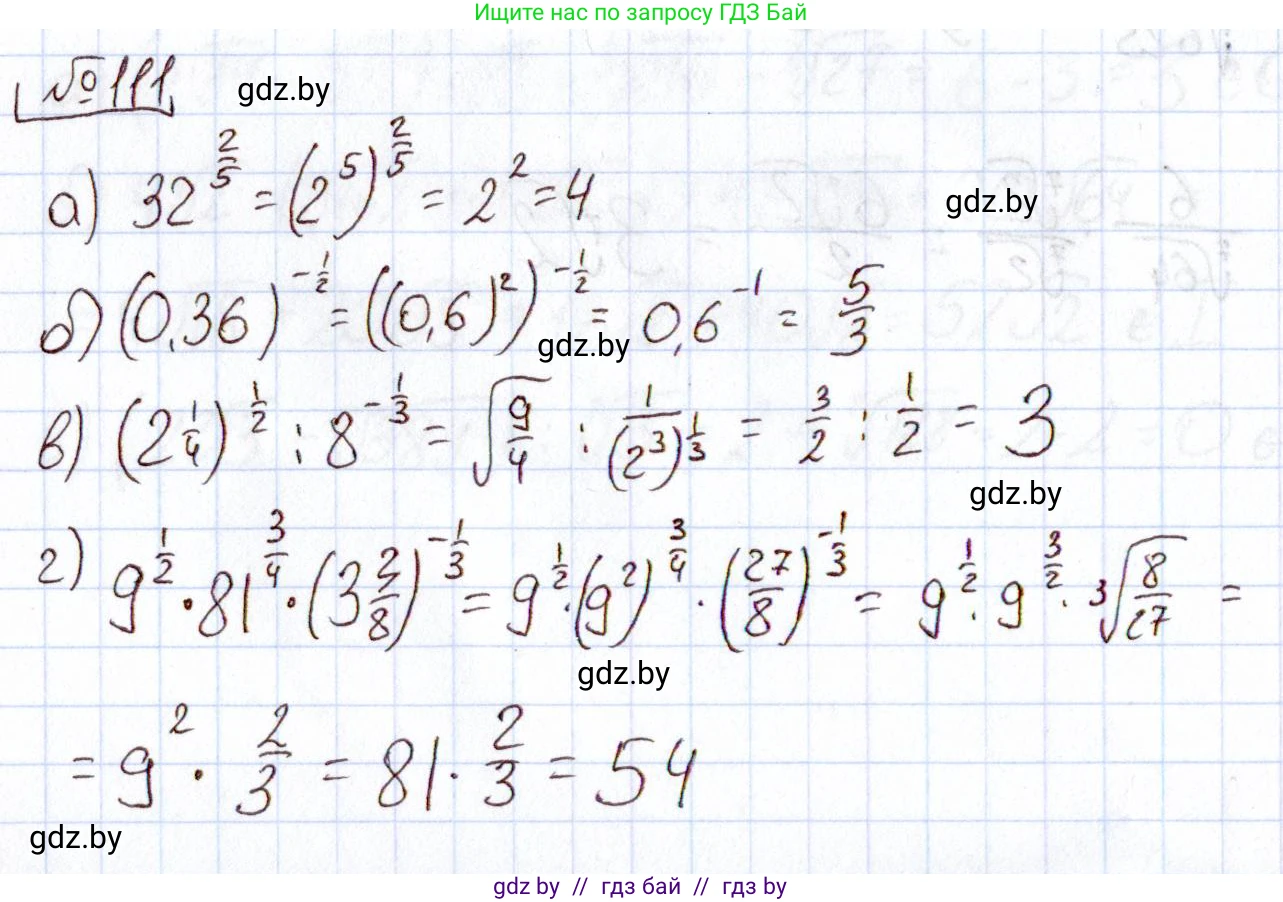 Ищите нас по запросу ГДЗ Бай
№111
gdz.by
а) 32^(2/5) = (2^5)^(2/5) = 2^2 = 4
gdz.by
б) (0,36)^(-1/2) = ((0,6)^2)^(-1/2) = 0,6^(-1) = 5/3
gdz.by
в) (2 1/4)^(1/2) : 8^(-1/3) = √(9/4) : 1/(2^3)^(1/3) = 3/2 : 1/2 = 3
gdz.by
г) 9^(1/2) · 81^(3/4) · (3 2/8)^(-1/3) = 9^(1/2) · (9^2)^(3/4) · (27/8)^(-1/3) = 9^(1/2) · 9^(3/2) · ∛(8/27) =
gdz.by
= 9^2 · 2/3 = 81 · 2/3 = 54
gdz.by
gdz by // гдз бай // гдз by